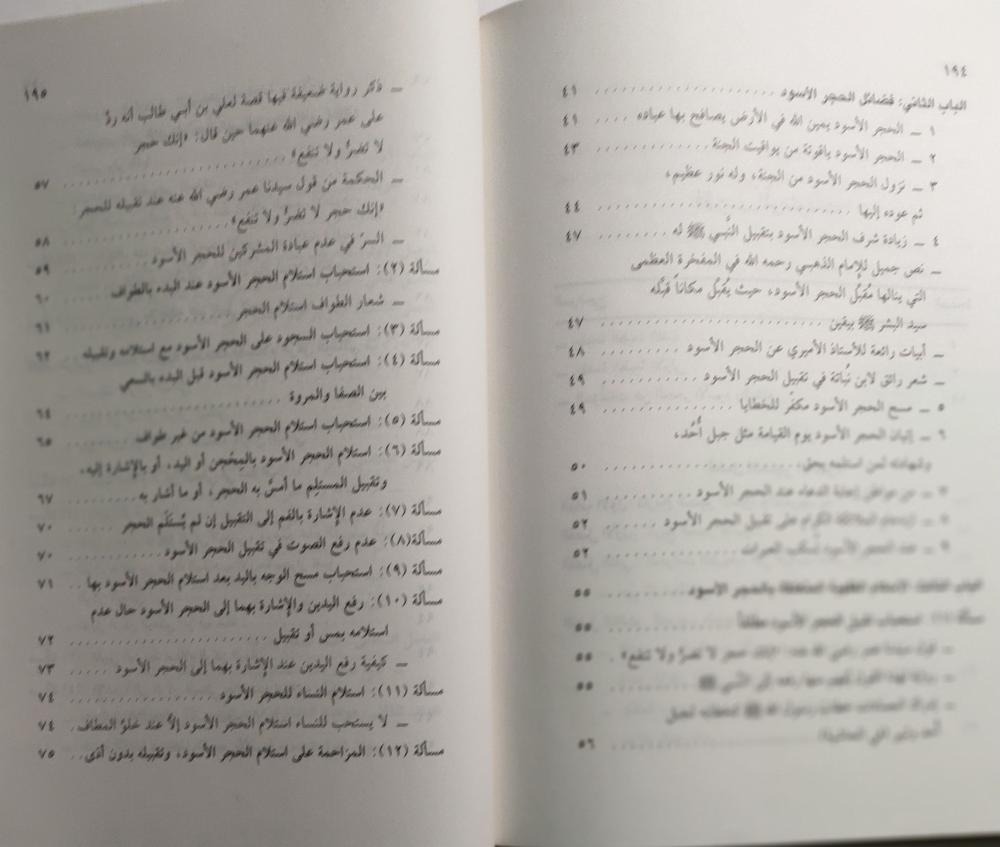 ١٩٤
الباب الثاني: فضائل الحجر الأسود .................... ٤١
١ ــ الحجر الأسود يمين الله في الأرض يصافح بها عباده .... ٤١
٢ ــ الحجر الأسود ياقوتة من يواقيت الجنة ............... ٤٣
٣ ــ نزول الحجر الأسود من الجنة، وله نور عظيم،
ثم عوده إليها ................................. ٤٤
٤ ــ زيادة شرف الحجر الأسود بتقبيل النَّبي ﷺ له ........ ٤٧
ــ نص جميل للإمام الذهبي رحمه الله في المفخرة العظمى
التي ينالها مُقبِّل الحجر الأسود، حيث يُقبِّل مكاناً قبَّله
سيد البشر ﷺ بيقين ........................... ٤٧
ــ أبيات رائعة للأستاذ الأميري عن الحجر الأسود .......... ٤٨
ــ شعر رائق لابن نُباتة في تقبيل الحجر الأسود ........... ٤٩
٥ ــ مسح الحجر الأسود مكفِّر للخطايا ................. ٤٩
٦ ــ إتيان الحجر الأسود يوم القيامة مثل جبل أُحُد،
وشهادته لمن استلمه بحق ........................ ٥٠
٧ ــ من مواطن إجابة الدعاء عند الحجر الأسود ........... ٥١
الملائكة الكرام على تقبيل الحجر الأسود ........ ٥٢
عند الحجر الأسود تُسكب العبرات ................. ٥٢
الأحكام الفقهية المتعلقة بالحجر الأسود ............ ٥٥
استحباب تقبيل الحجر الأسود مطلقاً ............... ٥٥
ــ قول سيدنا عمر رضي الله عنه: «إنك حجر لا تضرُّ ولا تنفع» . ٥٥
إلى النَّبي ﷺ ............ ٥٥
رسول الله ﷺ
................................. ٥٦
١٩٥
ــ ذكر رواية ضعيفة فيها قصة لعلي بن أبي طالب أنه ردَّ
على عمر رضي الله عنهما حين قال: «إنك حجر
لا تضرُّ ولا تنفع» ............................ ٥٧
ــ الحكمة من قول سيدنا عمر رضي الله عنه عند تقبيله للحجر:
«إنك حجر لا تضرُّ ولا تنفع» .................... ٥٨
ــ السرّ في عدم عبادة المشركين للحجر الأسود ............ ٥٩
مسألة (٢): استحباب استلام الحجر الأسود عند البدء بالطواف ٦٠
ــ شعار الطواف استلام الحجر ....................... ٦١
مسألة (٣): استحباب السجود على الحجر الأسود مع استلامه وتقبيله ٦٢
مسألة (٤): استحباب استلام الحجر الأسود قبل البدء بالسعي
بين الصفا والمروة ............................ ٦٤
مسألة (٥): استحباب استلام الحجر الأسود من غير طواف ...... ٦٥
مسألة (٦): استلام الحجر الأسود بالمِحْجن أو اليد، أو بالإشارة إليه،
وتقبيل المستلِم ما أمسَّ به الحجر، أو ما أشار به ........ ٦٧
مسألة (٧): عدم الإشارة بالفم إلى التقبيل إن لم يُستَلَم الحجر ٧٠
مسألة(٨): عدم رفع الصوت في تقبيل الحجر الأسود .......... ٧٠
مسألة (٩): استحباب مسح الوجه باليد بعد استلام الحجر الأسود بها .. ٧١
مسألة (١٠): رفع اليدين والإشارة بهما إلى الحجر الأسود حال عدم
استلامه بمس أو تقبيل ........................ ٧٢
ــ كيفية رفع اليدين عند الإشارة بهما إلى الحجر الأسود ...... ٧٣
مسألة (١١): استلام النساء للحجر الأسود ................ ٧٤
ــ لا يستحب للنساء استلام الحجر الأسود إلاَّ عند خلوِّ المطاف . ٧٤
مسألة (١٢): المزاحمة على استلام الحجر الأسود، وتقبيله بدون أذى .. ٧٥